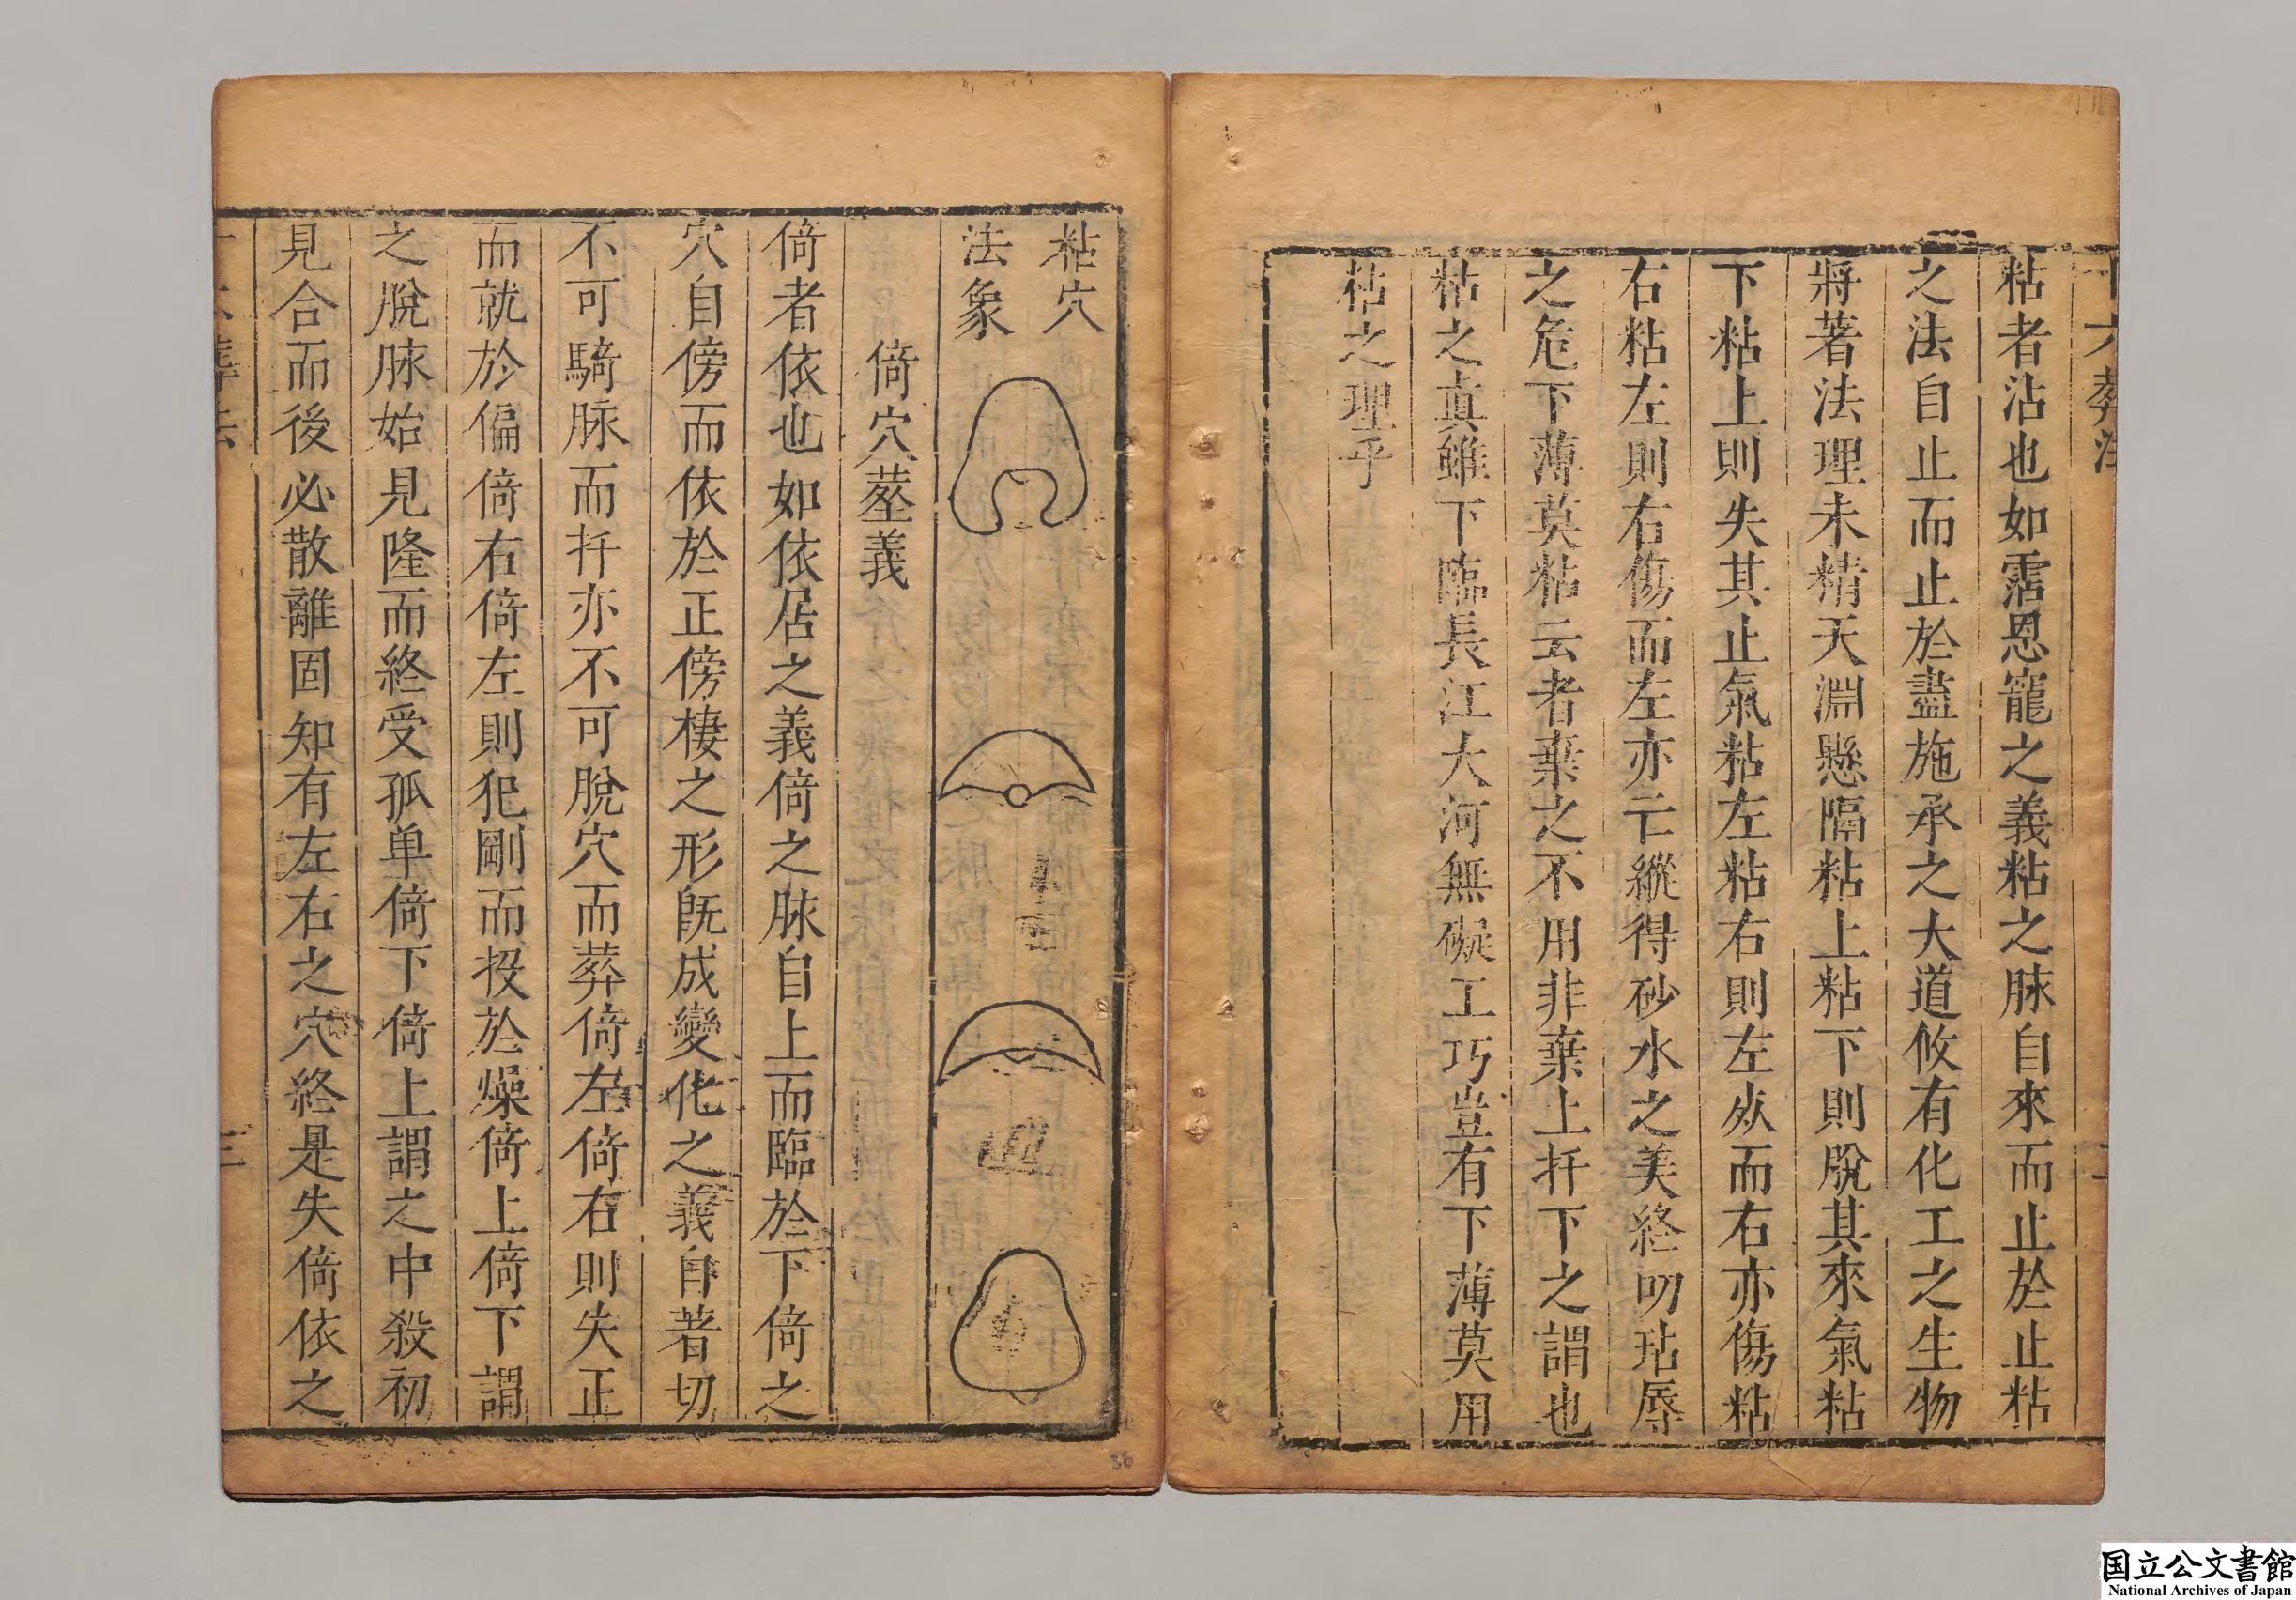 十六葬法
粘者沾也如霑恩寵之義粘之脉自來而止於止粘
之法自止而止於盡施承之大道攸有化工之生物
將著法理未精天淵懸隔粘上粘下則脫其來氣粘
下粘上則失其止氣粘左粘右則左欱而右亦傷粘
右粘左則右傷而左亦亡縱得砂水之美終叨玷辱
之危下薄莫粘云者棄之不用非棄上扦下之謂也
粘之真雖下臨長江大河無礙工巧豈有下薄莫用
粘之理乎
粘穴
法象
倚穴葬義
倚者依也如依居之義倚之脉自上而臨於下倚之
穴自傍而依於正傍棲之形旣成變化之義自著切
不可騎脉而扦亦不可脫穴而葬倚左倚右則失正
而就於偏倚右倚左則犯剛而投於燥倚上倚下謂
之脫脉始見隆而終受孤单倚下倚上謂之中殺初
見合而後必散離固知有左右之穴終是失倚依之
三
国立公文書館
National Archives of Japan